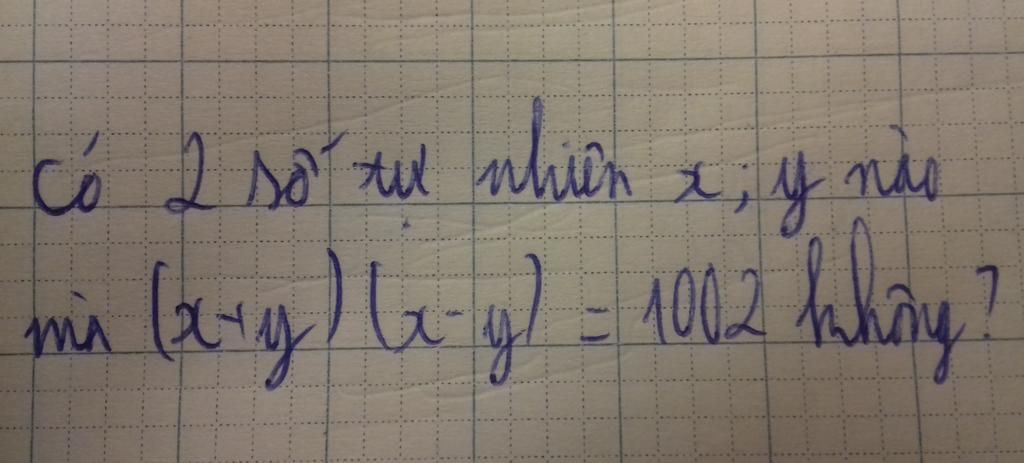 Có 2 số tự nhiên x; y nào
mà (x+y)(x-y) = 1002 không?